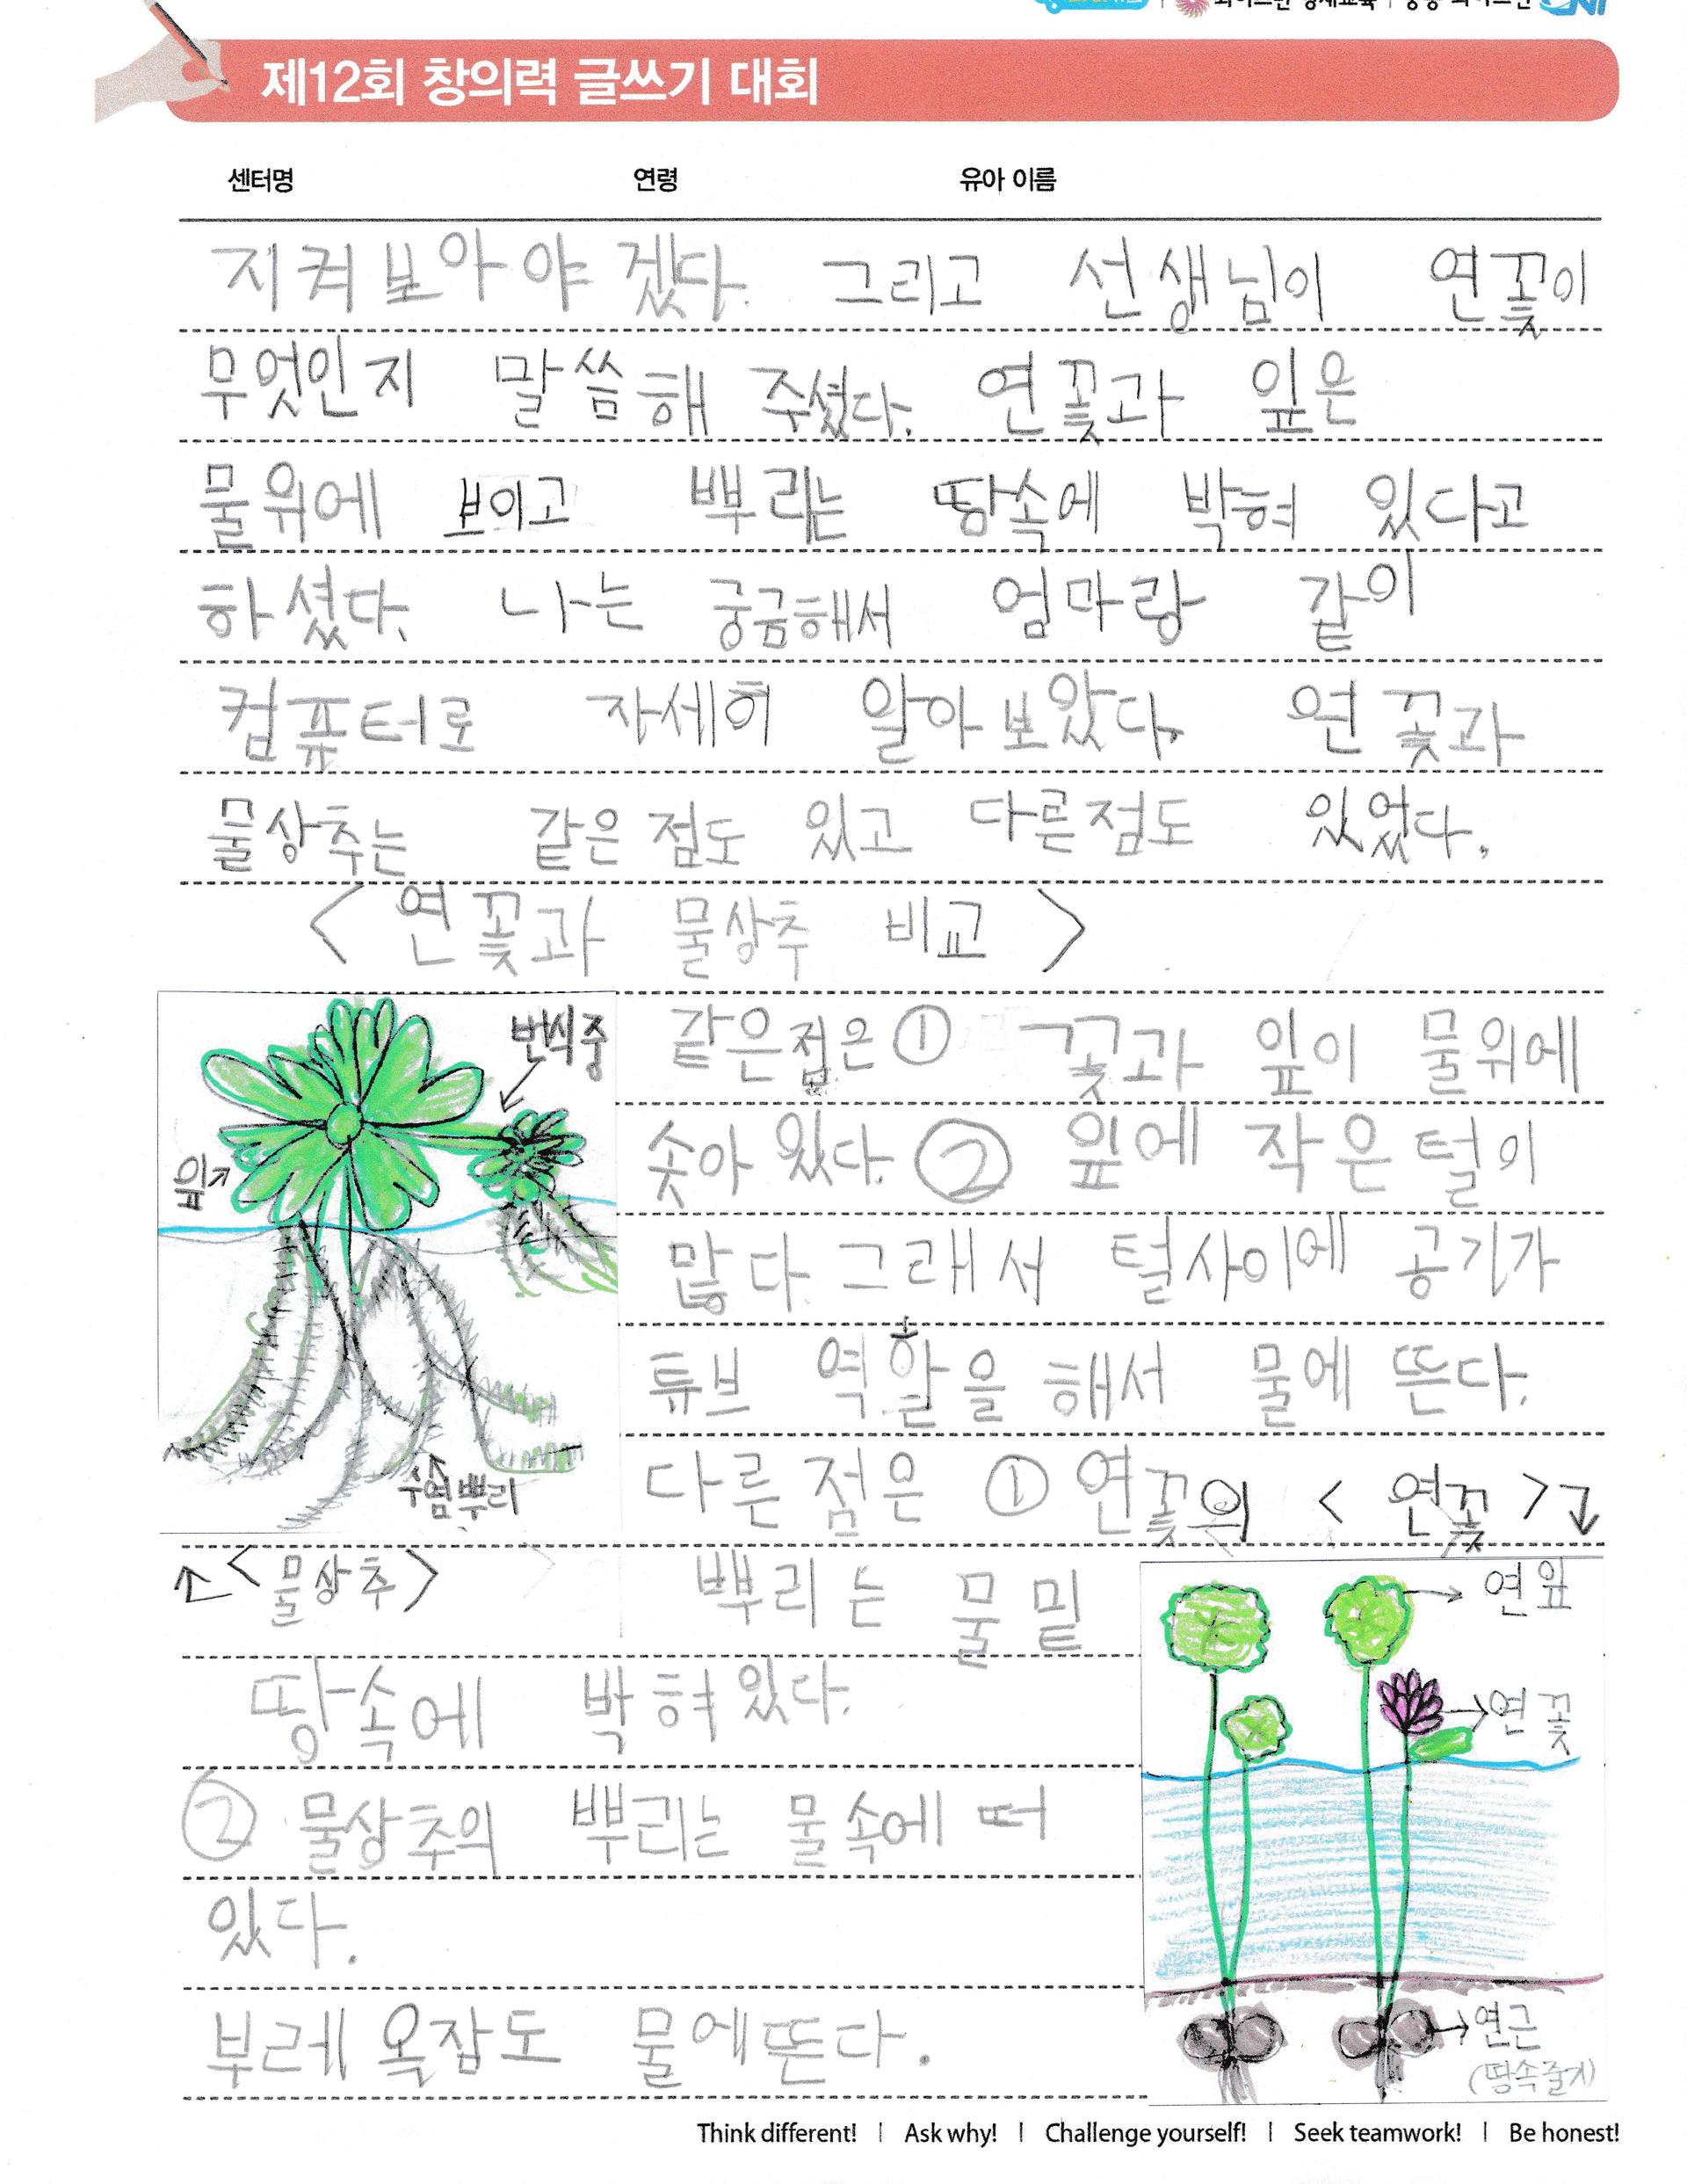 제12회 창의력 글쓰기 대회
센터명 연령 유아 이름
지켜보아야겠다. 그리고 선생님이 연꽃이
무엇인지 말씀해 주셨다. 연꽃과 잎은
물위에 보이고 뿌리는 땅속에 박혀 있다고
하셨다. 나는 궁금해서 엄마랑 같이
컴퓨터로 자세히 알아보았다. 연꽃과
물상추는 같은점도 있고 다른점도 있었다.
<연꽃과 물상추 비교>
번식중
잎
수염뿌리
같은점은 ① 꽃과 잎이 물위에
솟아 있다. ② 잎에 작은 털이
많다. 그래서 털사이에 공기가
튜브 역할을 해서 물에 뜬다.
다른 점은 ① 연꽃의 <연꽃>↓
↑<물상추> 뿌리는 물밑
땅속에 박혀있다.
② 물상추의 뿌리는 물속에 떠
있다.
부레옥잠도 물에뜬다.
→연잎
→연꽃
→연근
(땅속줄기)
Think different! | Ask why! | Challenge yourself! | Seek teamwork! | Be honest!